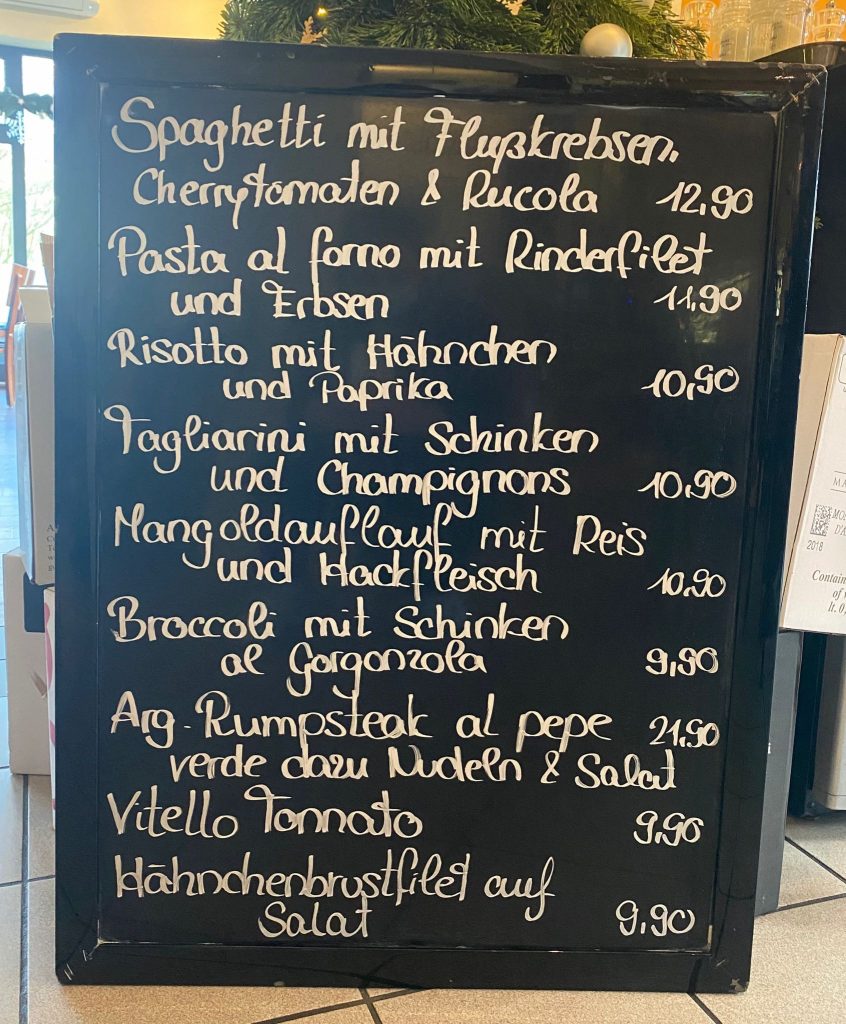 Spaghetti mit Flußkrebsen.
Cherrytomaten & Rucola 12,90
Pasta al forno mit Rinderfilet
und Erbsen 11,90
Risotto mit Hähnchen
und Paprika 10,90
Tagliarini mit Schinken
und Champignons 10,90
Mangoldauflauf mit Reis
und Hackfleisch 10,90
Broccoli mit Schinken
al Gorgonzola 9,90
Arg. Rumpsteak al pepe 21,90
verde dazu Nudeln & Salat
Vitello Tonnato 9,90
Hähnchenbrustfilet auf
Salat 9,90
2018
Contain
of